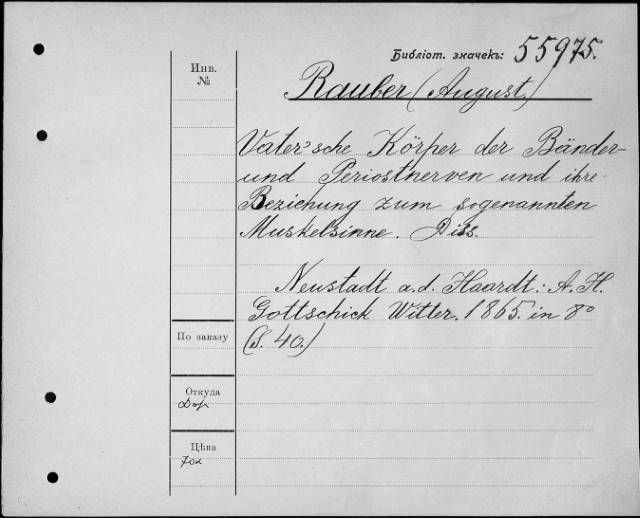 Библіот. значекъ: 55975.
Инв.
№
Rauber (August.)
Vater'sche Körper der Bänder-
und Periostnerven und ihre
Beziehung zum sogenannten
Muskelsinne. Diss.
Neustadt a.d. Haardt: A. H.
Gottschick Witter. 1865. in 8°
По заказу
(S. 40.)
Откуда
Дор
Цѣна